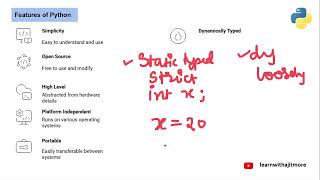 Features of Python
Simplicity
Easy to understand and use
Open Source
Free to use and modify
High Level
Abstracted from hardware
details
Platform Independent
Runs on various operating
systems
Portable
Easily transferable between
systems
Dynamically Typed
Static typed
Strict
int x;
x = 20
dy
loosely
learnwithajitmore